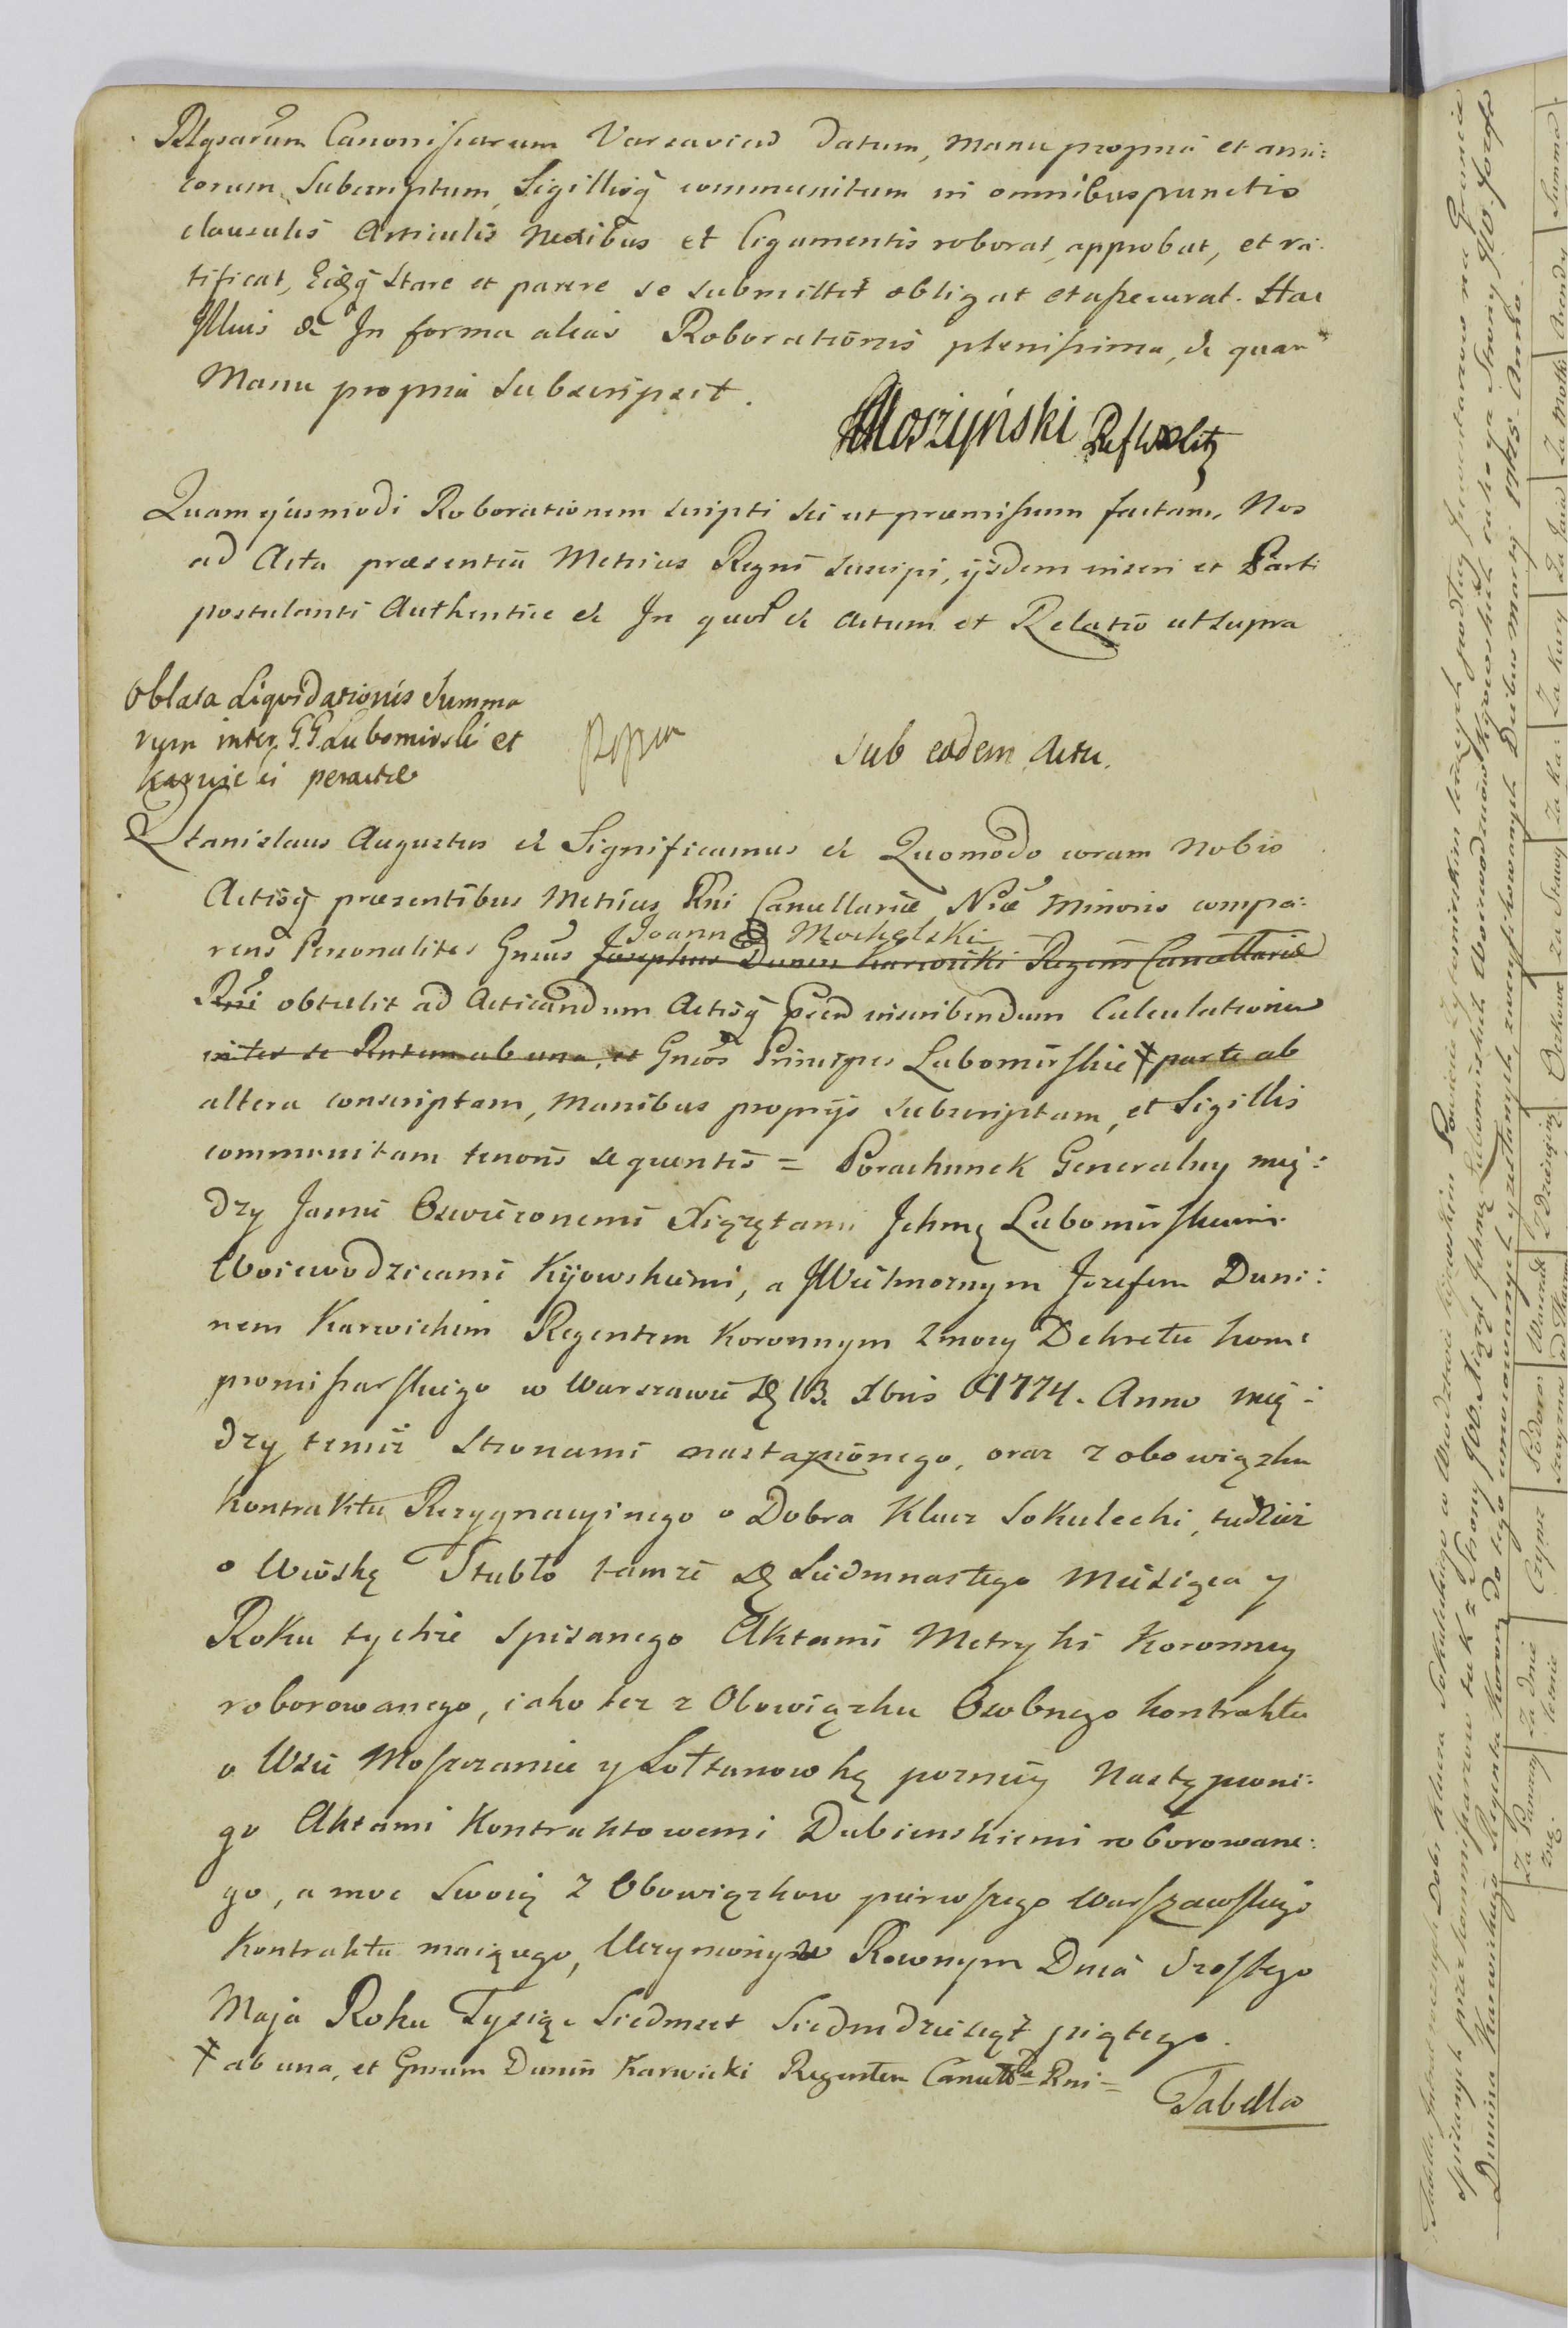 Rlgsarum Canonissarum Varsaviae Datum, Manu propria et ami:
corum Subscriptum, Sigillisq communitum in omnibus punctis
clausulis Articulis Nexibus et ligamentis roborat, approbat, et ra:
tificat, Eidẽq Stare et parere se submittit obligat et assecurat. Hac
In forma alias Roborationis plenissima, de qua
Manu propria Subscripsit.
Moszyński Ref W X Litt
Quam ejusmodi Roborationem scripti sui ut praemissum factam, Nos
ad Acta praesentia Metrices Regni suscipi, ijsdem inseri et Parti
postulanti Authentice & In quor & Actum et Relatio ut supra
Oblata Liquidationis Summa
rum inter G.G. Lubomirski et
Karwicki peractae
Sub eodem Actu.
Stanislaus Augustus & Significamus & Quomodo coram Nobis
Actisq praesentibus Metrices Rni Cancellariae Nrae Minoris compa:
Joannes Mochelski
rens Personaliter Gnsus Josephus Dunin Karwicki Regens Cancellariae
Rni obtulit ad Acticandum Actisq inscribendum Calculationem
inter se ab una, et Gnsos Principes Lubomirskie ☓ parte ab
altera conscriptam, Manibus proprijs subscriptam, et Sigillis
communitam tenoris sequentis = Porachunek Generalny mię:
dzy Jaśnie Oswieconemi Xiążętami Jchmę Lubomirskiemi
Woiewodzicami Kijowskiemi, a JWielmożnym Jozefem Duni:
nem Karwickim Regentem Koronnym z mocy Dekretu kom:
promissarskiego w Warszawie D 13. Xbris 1774. Anno mię:
dzy temiż Stronami nastąpionego, oraz z obowiązku
kontraktu Rezygnacyinego o Dobra Klucz Sokulecki, tudzież
o Wioskę Stubło tamże D Siedmnastego Miesiąca y
Roku tychże spisanego Aktami Metryki Koronney
roborowanego, iako też z Obowiązku Osobnego kontraktu
o Wsie Moszczanice y Sołtanowkę pozniey Nastąpioni:
go Aktami Kontraktowemi Dubienskiemi roborowane:
go, a moc Swoią z Obowiązkow pierwszego Warszawskiego
Kontraktu maiącego, Uczyniony w Rownym Dnia Szostego
Maja Roku Tysiąc Siedmset Siedmdziesiąt piątego.
☓ ab una, et Gnsum Dunin Karwicki Regentem Cancellae Rni =
Tabella
Tabella Dobr Klucza Sokuleckiego w Wwdztwie Kijowskim Powiecie Zytomirskim leżących podług Jnwentarzow na Gruncie
spisanych przez kommissarzow tak z Strony JOO. Xiążąt Jchmę Lubomirskich Woiewodzicow Kijowskich iako y z Strony JWo. Jozefa
Dunina Karwickiego Regenta Koron. do tego umocowanych y zesłanych, zweryfikowanych Diebus Martij 1775. Anno.
Za Panny
Za Dnie
letnie
Czynsz
Podoro
szczyzna
Warunki
Z Dziesięciny
Oczkowe
Za Stawy
Za Kar
Za Kury
Za Jaia
Za Motki
Arendy
Summa